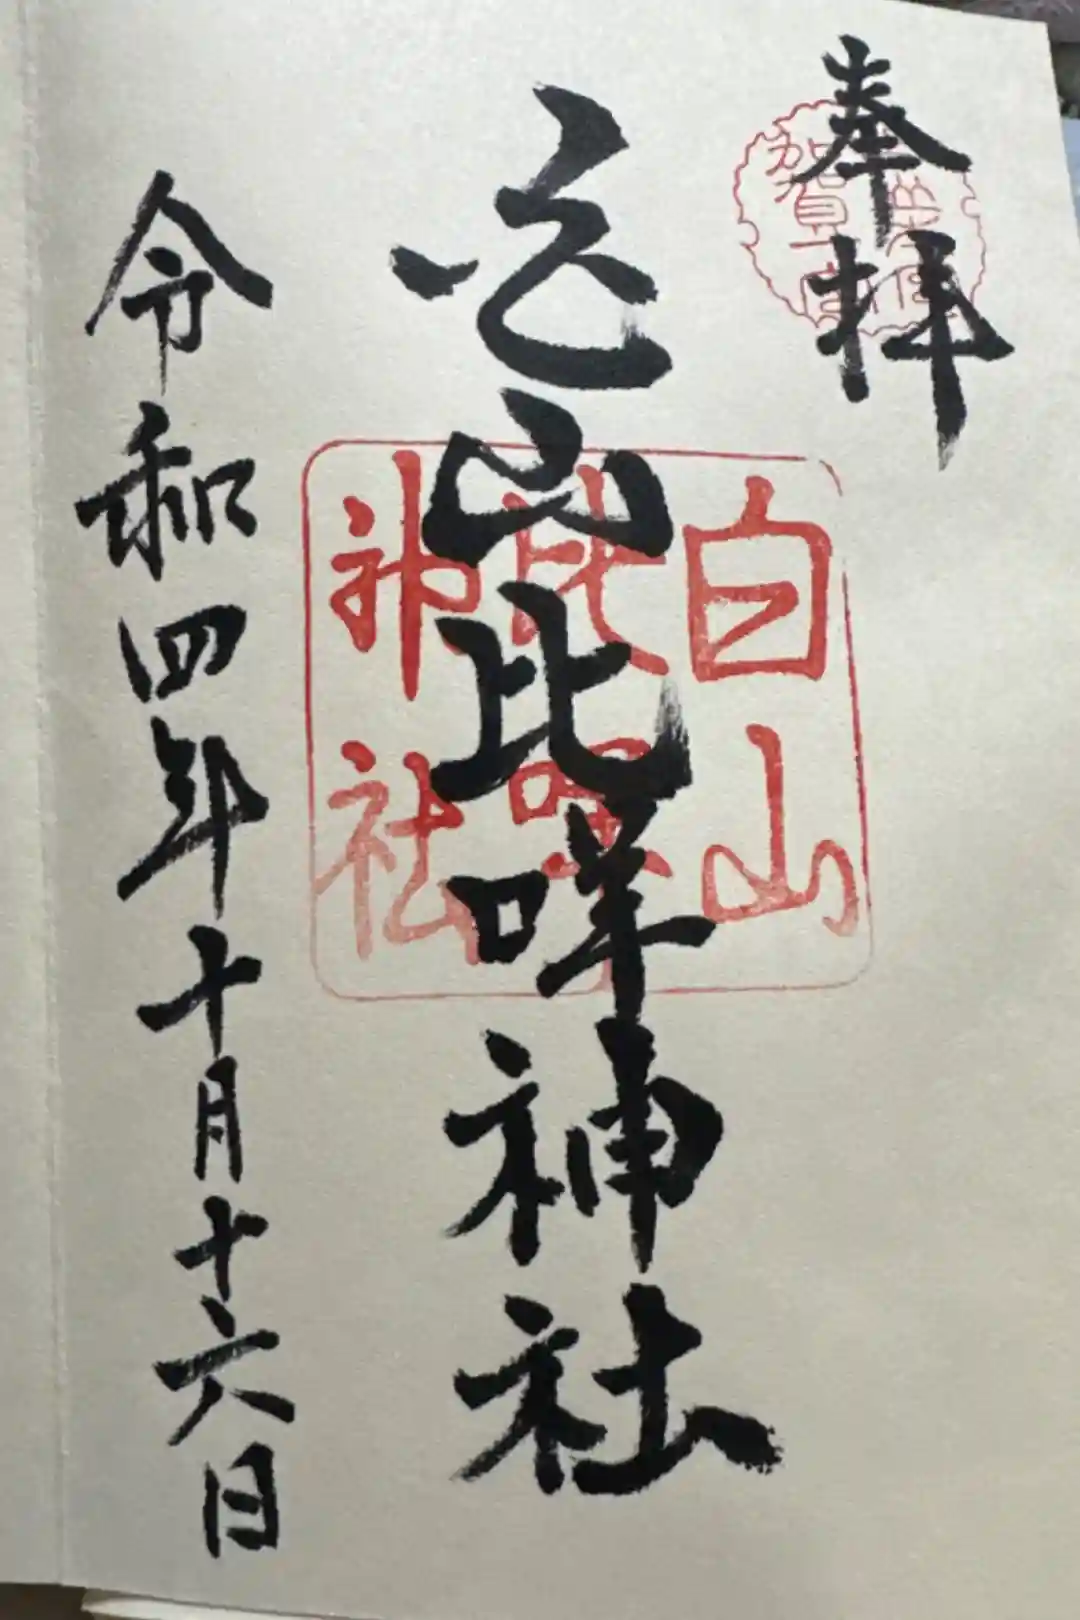 奉拝
加賀一
白山比咩神社
白山
比咩
神社
令和四年十月十六日